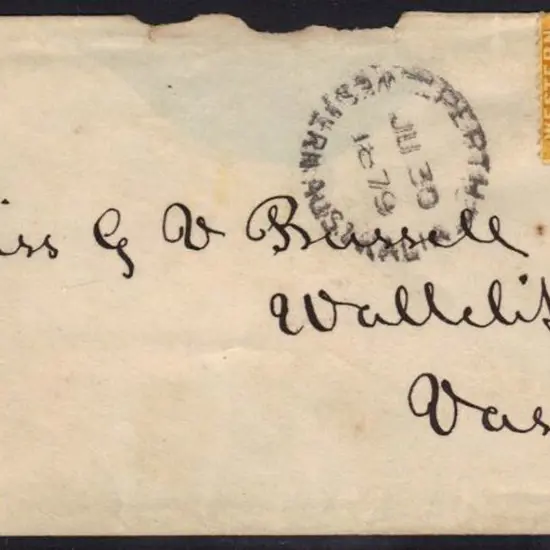 PERTH
WESTERN AUSTRALIA
JU 30
1879
iss G V Bussell
Wallclif
Vas